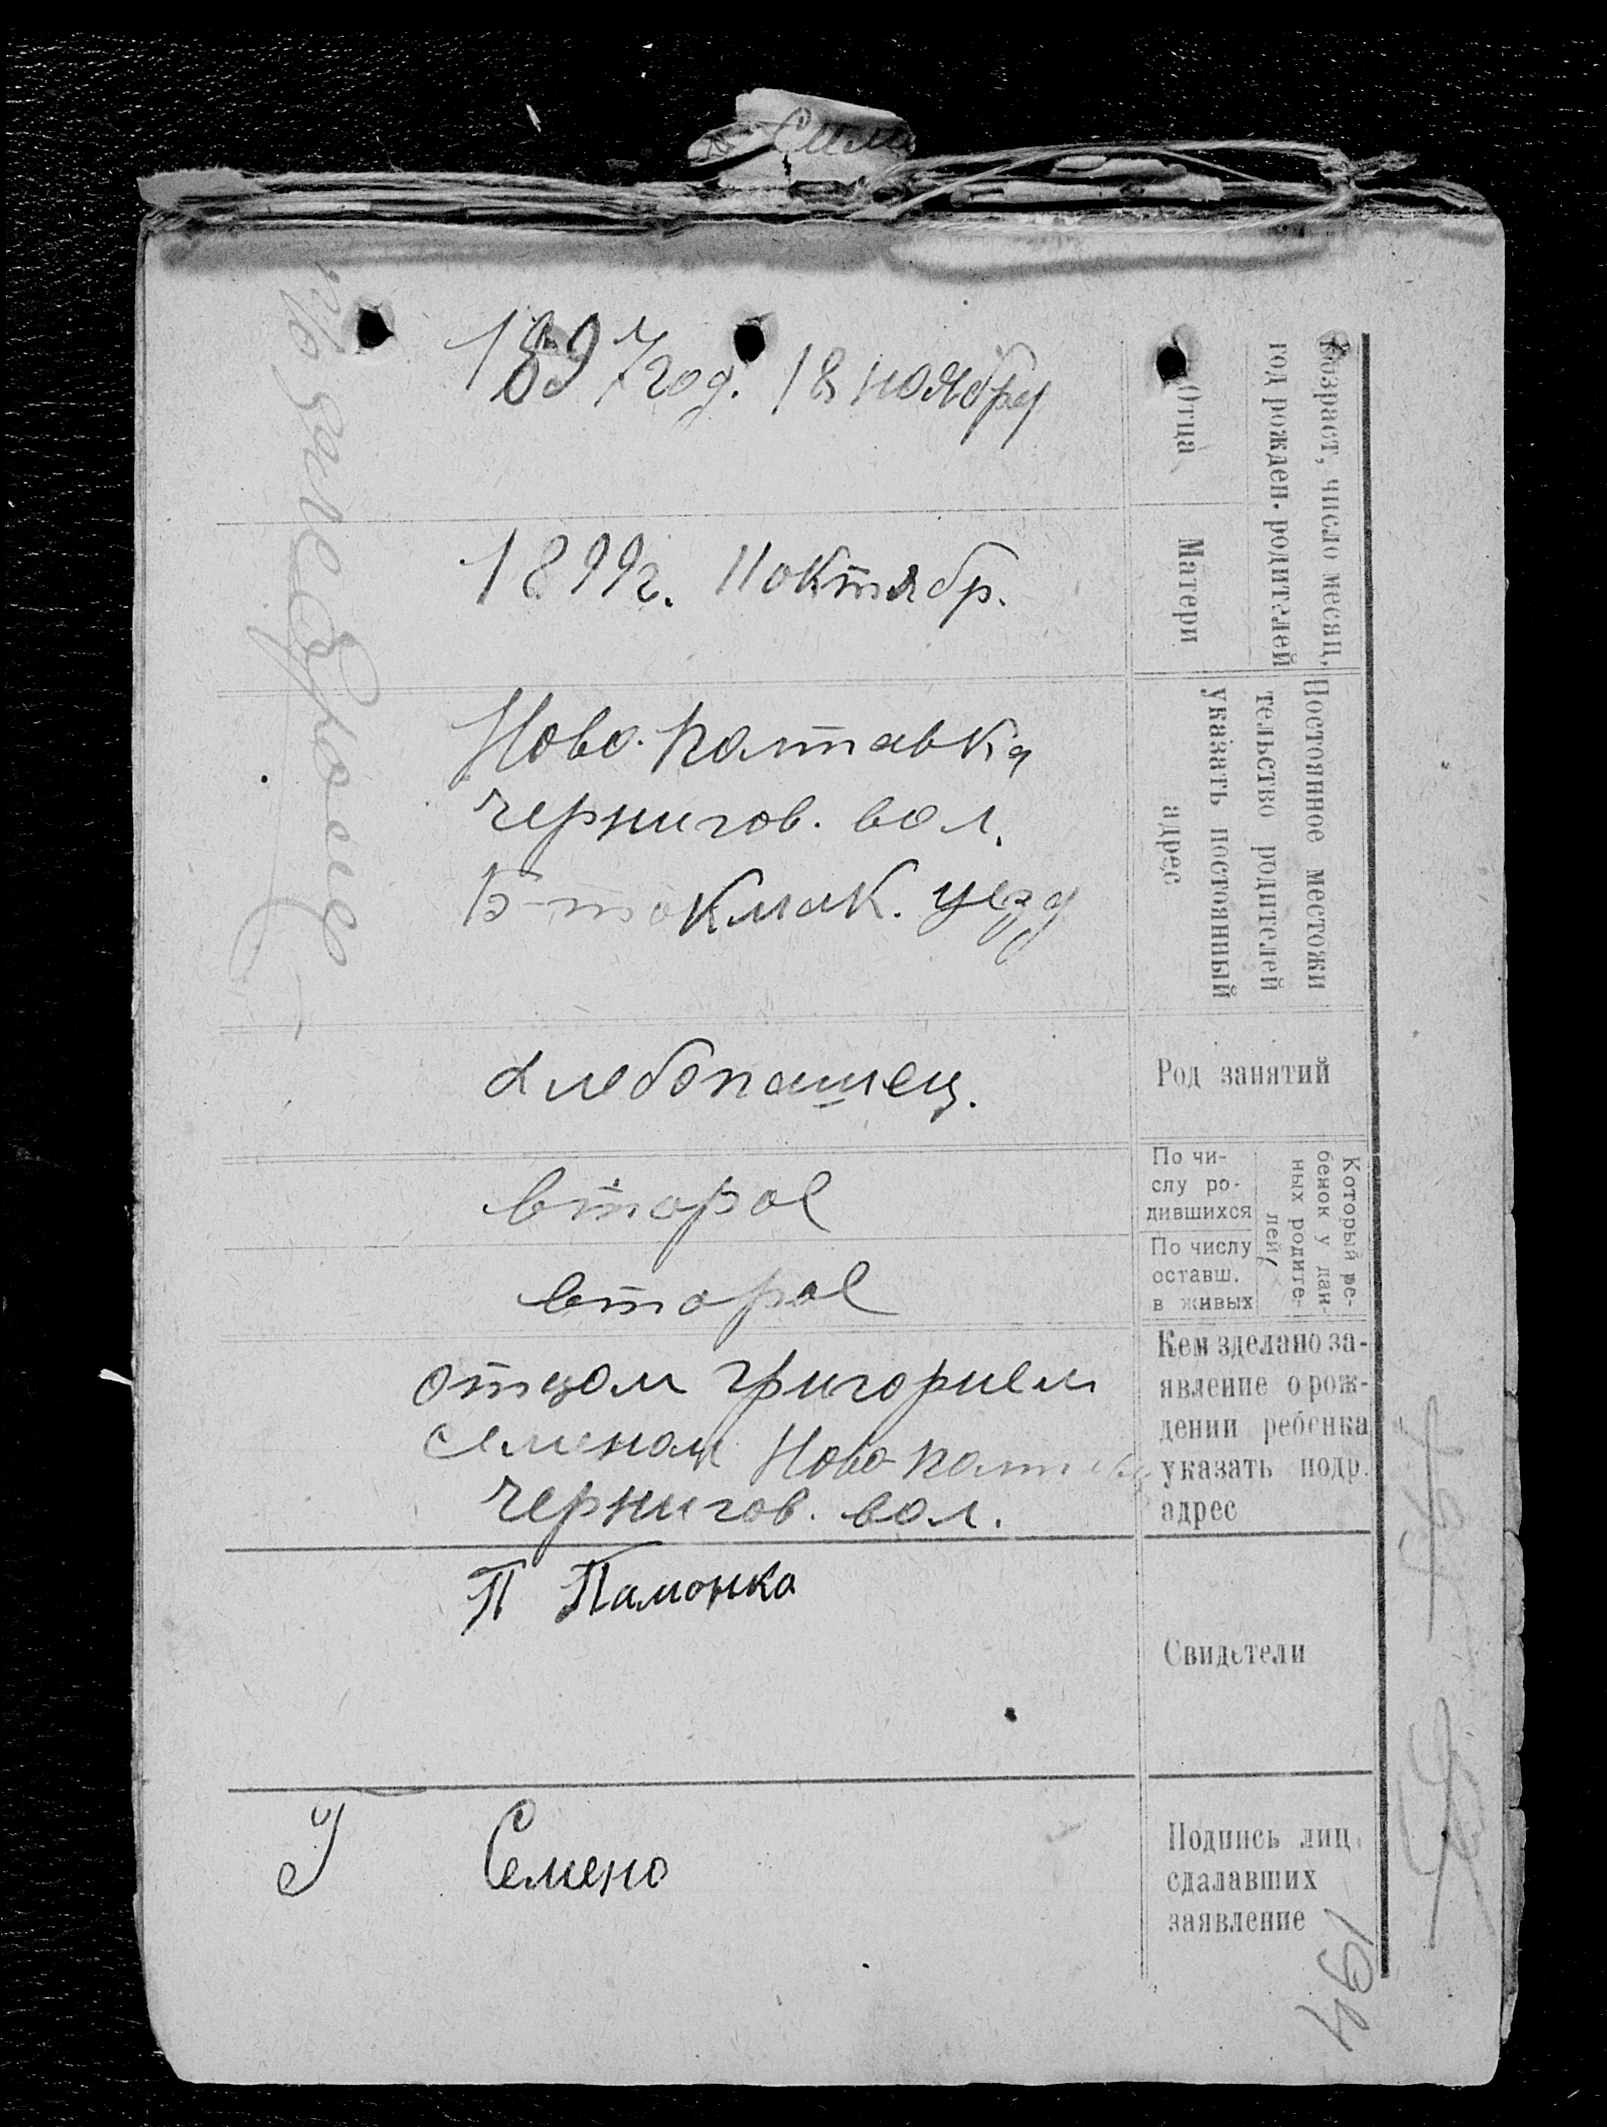 Возраст, число месяц,
год рожден. родителей
Отца
1897 год. 18 ноября
Матери
1899 г. 11 октябр.
Постоянное местожи
тельство родителей
указать постоянный
адрес
Ново-Полтавка
чернигов. вол.
Б-токмак. уезд
Род занятий
хлебопашец.
Который ре-
бенок у дан-
ных родите-
лей
По чи-
слу ро-
дившихся
второе
По числу
оставш.
в живых
второе
Кем зделано за-
явление о рож-
дении ребенка
указать подр.
адрес
отцом григорием
семеном Ново-Полтав
чернигов. вол.
Свидетели
П Памонка
Подпись лиц
сдалавших
заявление
Семено
194